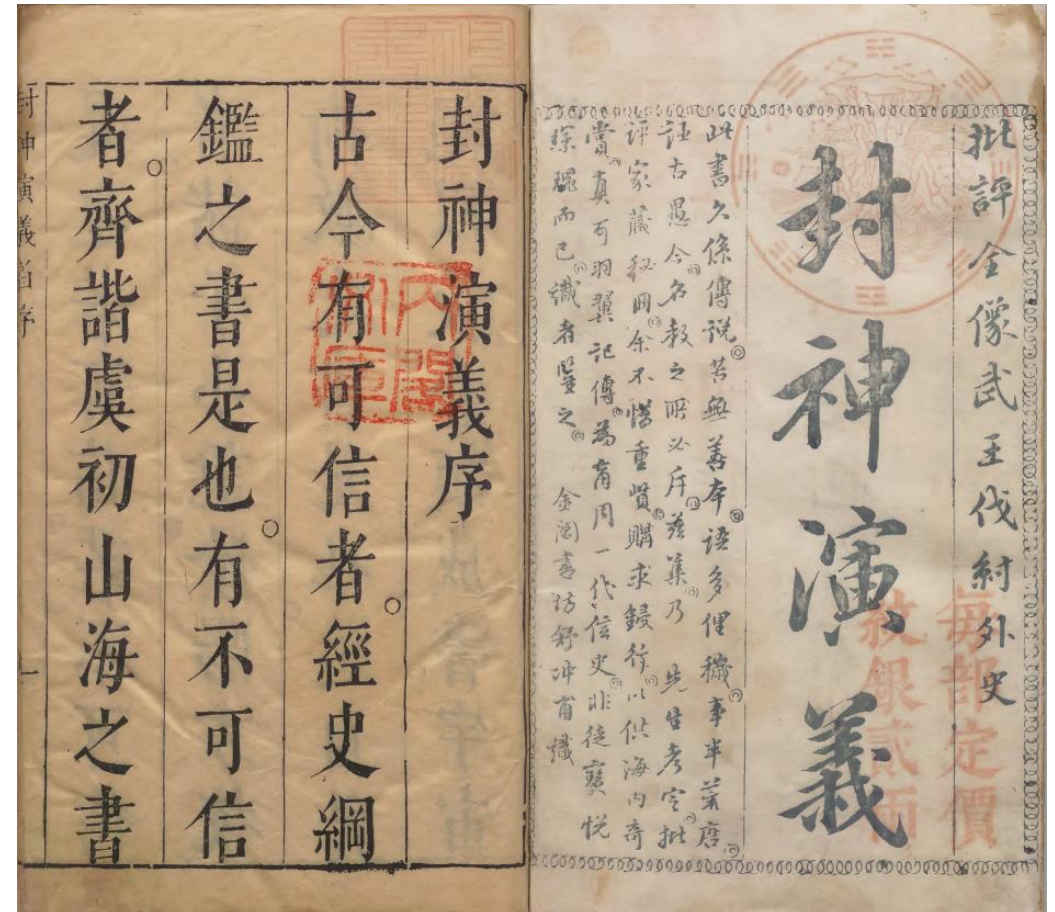 批評全像武王伐紂外史
封神演義
此書久係傳說苦無善本語多俚穢事半荒唐
誣古愚今名教之所必斥茲集乃 先生考定批
評家藏秘冊余不惜重貲購求鋟行以供海內奇
賞真可羽翼記傳為商周一代信史非徒寶悅
琛瑰而已識者鑒之 金閶書坊舒冲甫識
每部定價
紋銀貳兩
封神演義序
古今有可信者經史綱
鑑之書是也有不可信
者齊諧虞初山海之書
內閣
文庫
封神演義 序
一